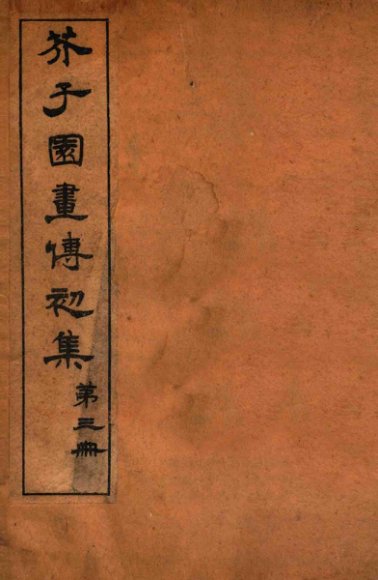 芥子園畫傳初集
第三冊